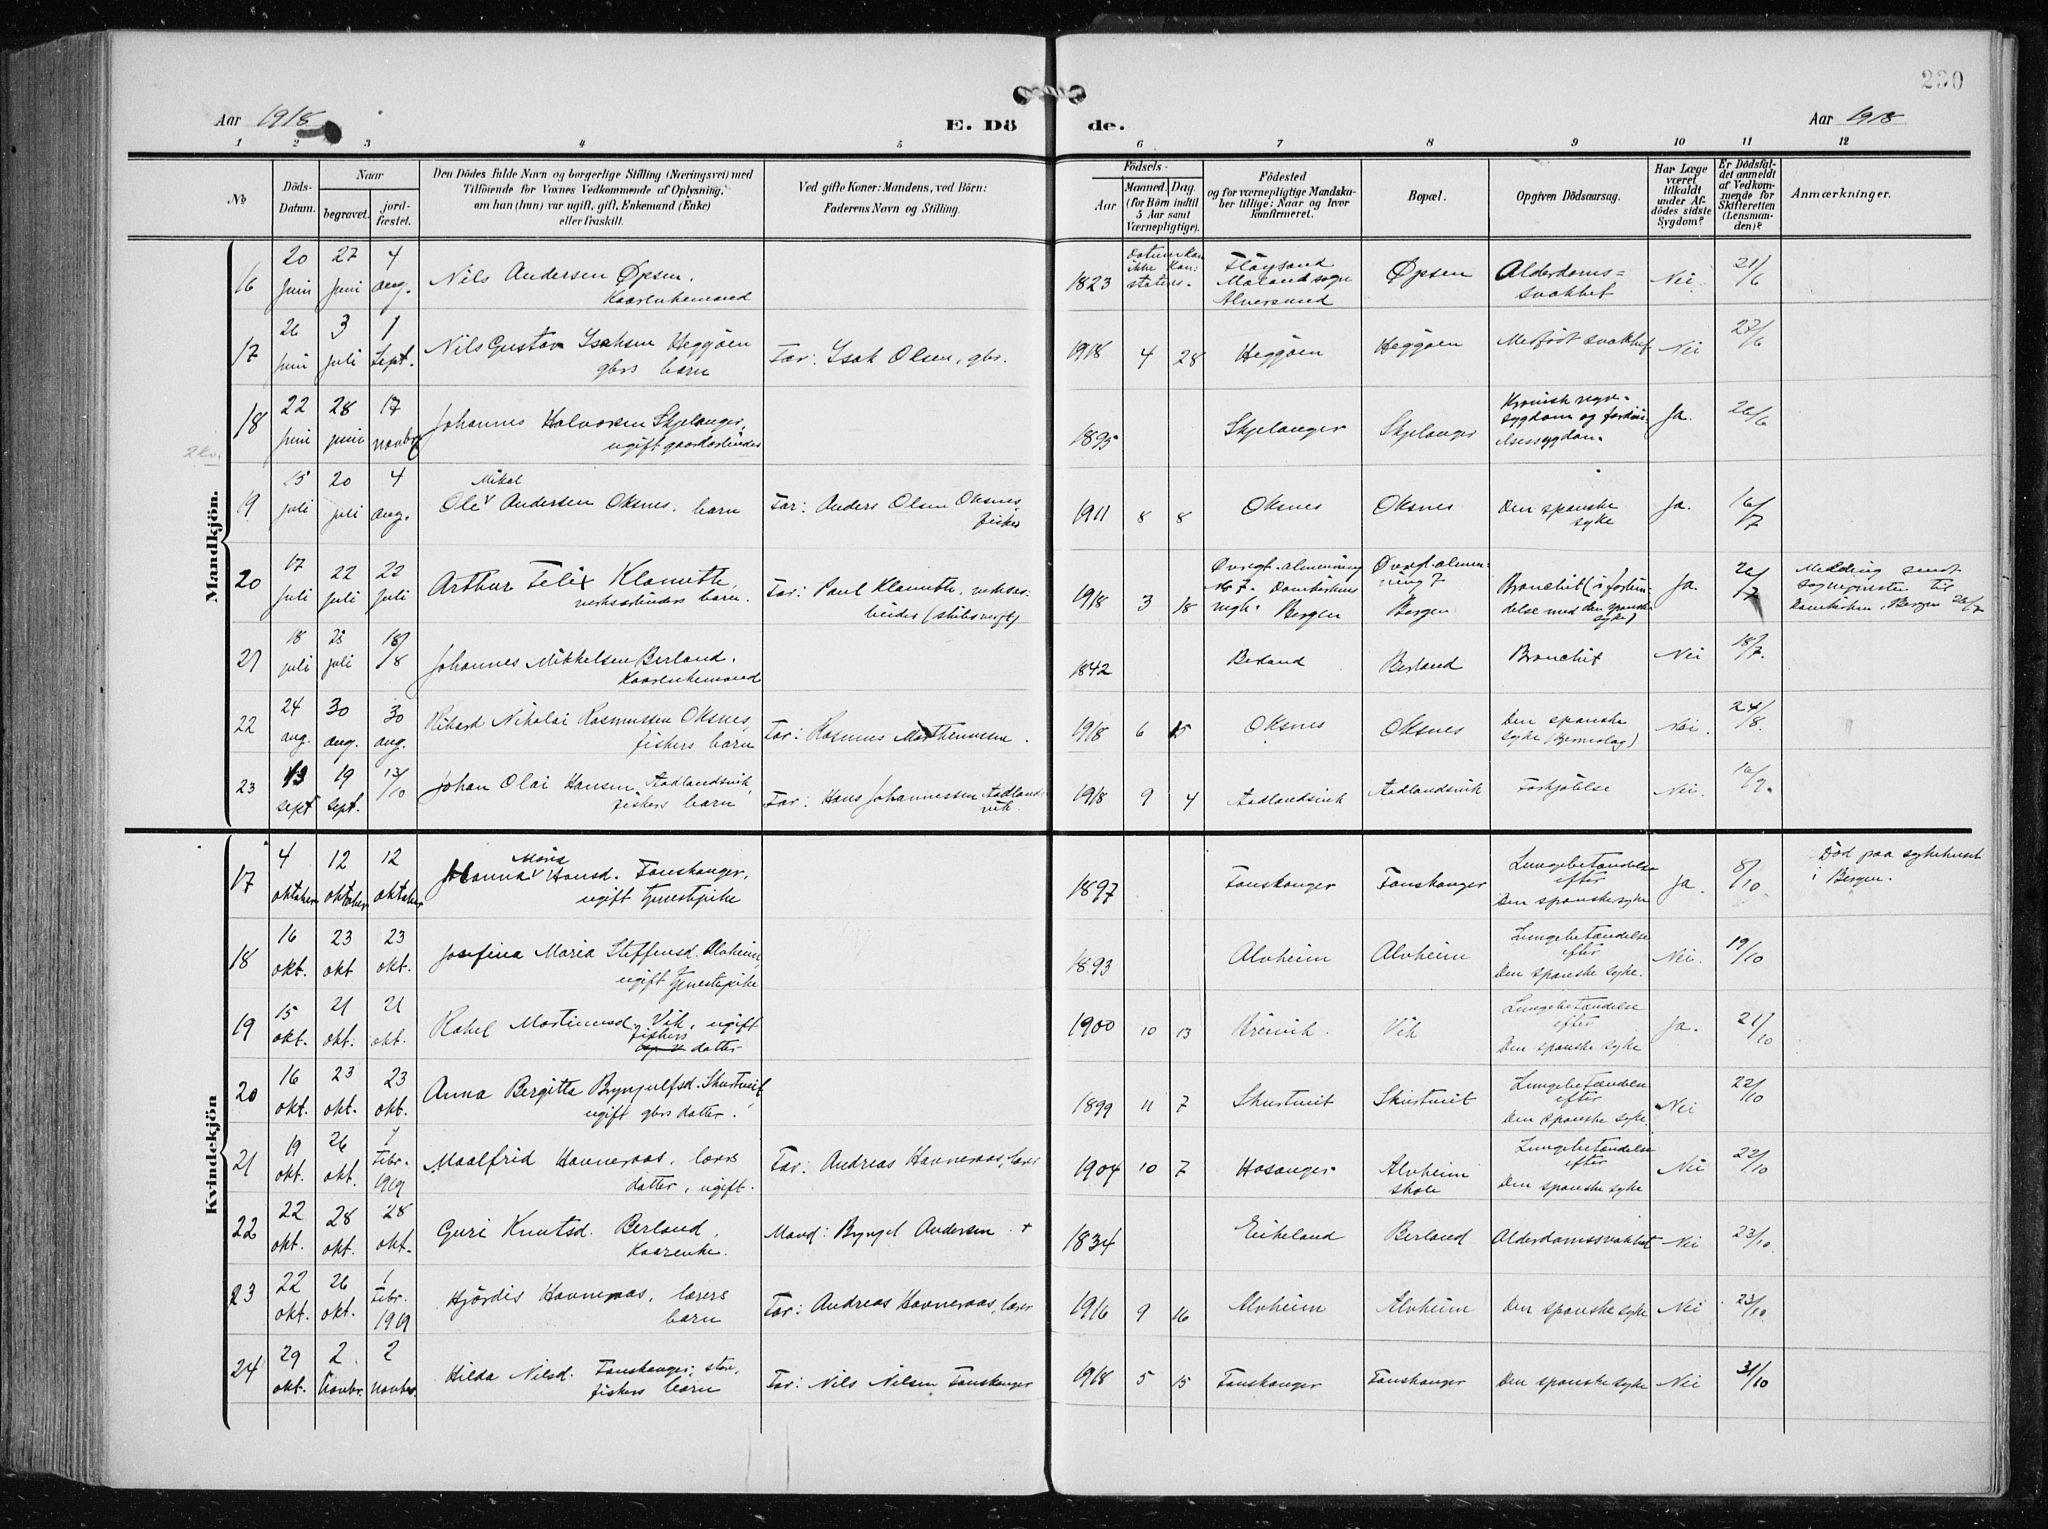 230
Aar 1918
E. Dö de.
Aar 1918
1 2 3 4 5 6 7 8 9 10 11 12
No
Döds-Datum.
Naar
begravet.
jord-fæstet.
Den Dödes fulde Navn og borgerlige Stilling (Næringsvei) med
Tilföiende for Voxnes Vedkommende af Oplysning,
om han (hun) var ugift, gift, Enkemand (Enke)
eller fraskilt.
Ved gifte Koner: Mandens, ved Börn:
Faderens Navn og Stilling.
Födsels-
Aar
Maaned. Dag.
(for Börn indtil
5 Aar samt
Værnepligtige).
Födested
og for værnepligtige Mandska-
ber tillige: Naar og hvor
konfirmeret.
Bopæl.
Opgiven Dödsaarsag.
Har Læge
været
tilkaldt
under Af-
dödes sidste
Sygdom?
Er Dödsfal-
det anmeldt
af Vedkom-
mende for
Skifteretten
(Lensman-
den)?
Anmærkninger.
Mandkjön.
16 20 juni 27 juni 4 aug. Nils Andersen Øpsen, Kaarenkemand 1823 Datum kan ikke kon- stateres. Fløysand Alversund Øpsen Alderdoms= svakhet Nei. 21/6
17 26 juni 3 juli 1 Sept. Nils Gustav Isaksen Heggøen gbrs barn Far: Isak Olsen, gbr. 1918 4 28 Heggøen Heggøen Medfødt svakhet Nei 27/6
2kv.
18 22 juni 28 juni 17 novbr Johannes Halvorsen Skjelanger, ugift gaardarbeider 1895 Skjelanger Skjelanger Kronisk nyre- sygdom og fordøi- elsessygdom. Ja. 26/6
19 15 juli 20 juli 4 aug. Ole Mikal Andersen Oksnes, barn Far: Anders Olsen Oksnes, fisker 1911 8 8 Oksnes Oksnes Den spanske syke Ja. 16/7
20 17 juli 22 juli 22 juli Arthur Felix Klamuth, verksarbeiders barn. Far: Paul Klamuth, verksar- beider (skibsverft) 1918 3 18 Øvregt.almenning No 7. Domkirkens Bergen Øvregt.almen- ning 7 Bergen Bronchit (i forbin- delse med den spanske syke) Ja. 26/7 Melding sendt sogneprsten til Domkirken, Bergen 26/7
21 18 juli 25 juli 18/8 Johannes Mikkelsen Berland. Kaarenkemand 1842 Berland Berland Bronchit Nei 18/7.
22 24 aug. 30 aug. 30 aug. Rikard Nikolai Rasmussen Oksnes, fiskers barn Far: Rasmus Marthenussen. 1918 6 15 Oksnes Oksnes Den spanske syke (hjerneslag) Nei. 24/8.
23 13 sept 19 sept. 13/10 Johan Olai Hansen Aadlandsvik, fiskers barn Far: Hans Johannessen Aadlands- vik. 1918 9 4 Aadlandsvik Aadlandsvik Forkjølelse Nei. 16/9.
Kvindekjön
17 4 oktober 12 oktober 12 oktober Johanna Maria Hansd. Fonskanger, ugift tjenestepike 1897 Fonskanger Fonskanger Lungebetændelse efter Den spanske syke Ja. 8/10 Død paa sykehuset i Bergen.
18 16 okt. 23 okt 23 okt. Josefina Maria Steffensd. Alvheim, ugift tjenestepike 1893 Alvheim Alvheim Lungebetændelse efter Den spanske syke. Nei. 19/10
19 15 okt. 21 okt. 21 okt. Rakel Martinusd. Vik, ugift fiskers datter 1900 10 13 Vik Lungebetændelse efter Den spanske syke Ja. 21/10
20 16 okt. 23 okt. 23 okt. Anna Bergitta Brynjulfsd. Skurtveit ugift gbrs datter. 1899 11 7 Skurtveit Skurtveit Lungebetændelse efter Den spanske syke. Nei 22/10
21 19 okt. 26 okt. 1 Febr. 1919 Maalfrid Havneraas, lærers datter, ugift. Far: Andreas Havneraas, lærer 1904 10 7 Hosanger Alvheim skole Lungebetændelse efter Den spanske syke Nei 22/10
22 22 okt. 28 okt. 28 okt. Guri Knutsd. Berland, Kaarenke. Mand: Bryngel Andersen + 1834 Eikeland Berland Alderdomssvakhet Nei 23/10.
23 22 okt. 26 okt. 1 Febr. 1919 Hjørdis Havneraas, lærers barn Far: Andreas Havneraas, lærer 1916 9 16 Alvheim Alvheim Den spanske syke Nei 23/10
24 29 okt. 2 Novbr. 2 novbr. Hilda Nilsd. Fonskanger, fiskers barn Far: Nils Nilsen Fonskanger 1918 5 15 Fonskanger Fonskanger Den spanske syke Nei 31/10